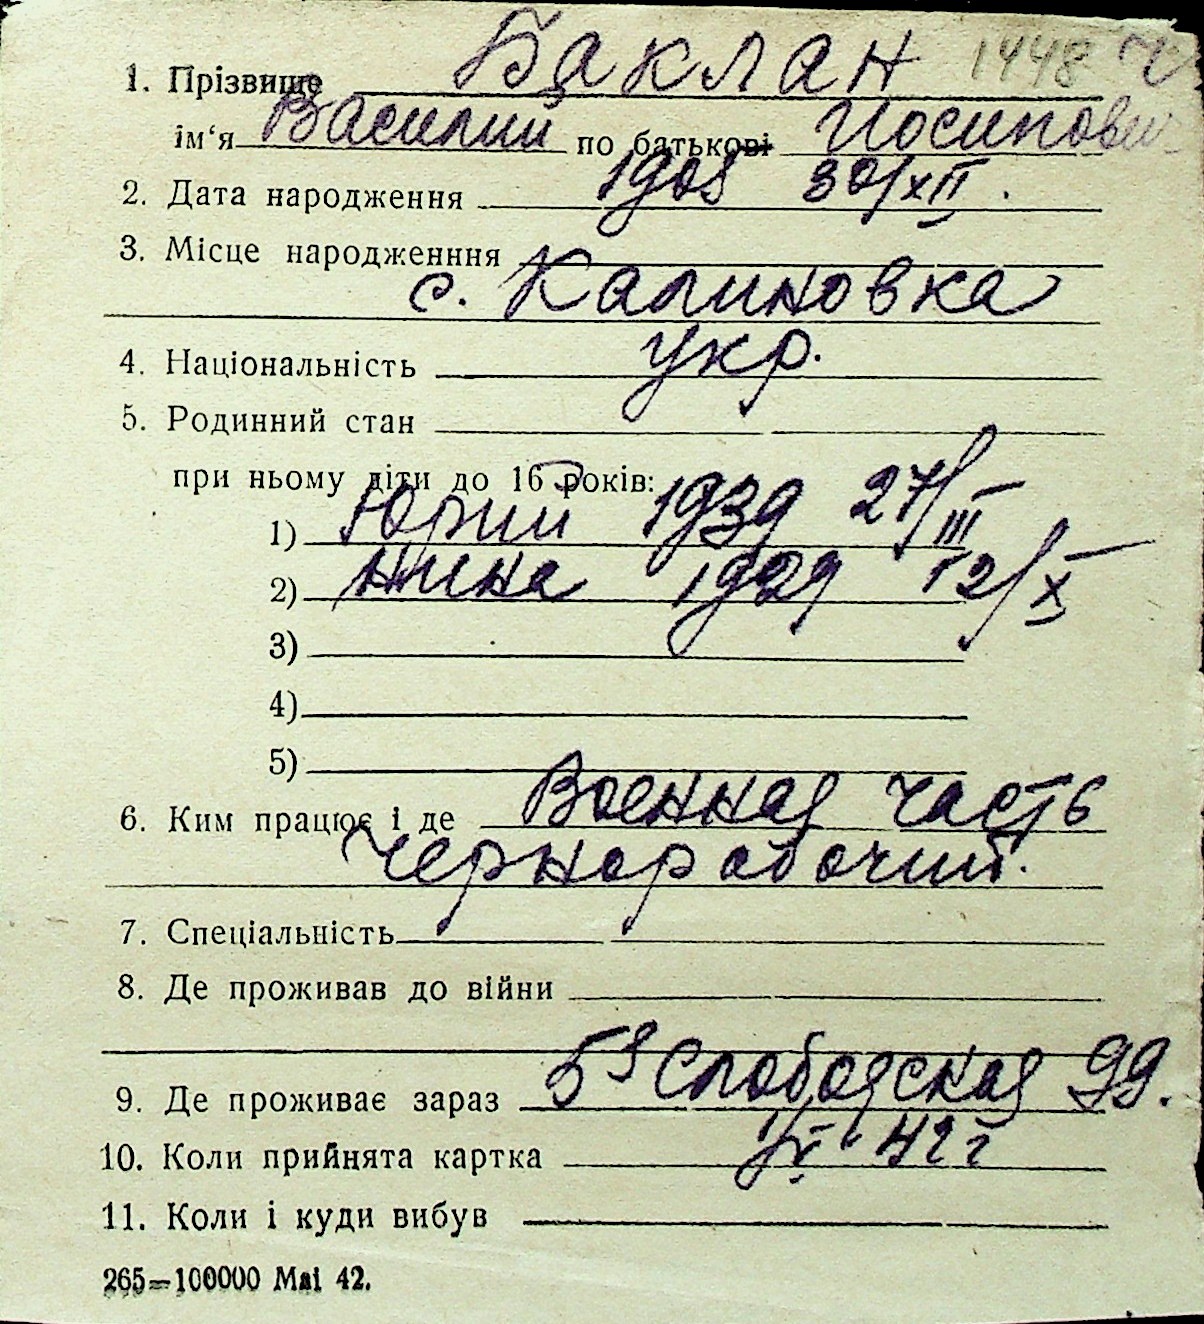 1. Прізвище Баклан 1448
ім'я Василий по батькові Иосипович
2. Дата народження 1908 30/XII.
3. Місце народженння
с. Калиновка
4. Національність укр.
5. Родинний стан
при ньому діти до 16 років:
1) Юрий 1939 27/III
2) Нина 1929 12/X
3)
4)
5)
6. Ким працює і де Военная часть
Чернорабочий.
7. Спеціальність
8. Де проживав до війни
9. Де проживає зараз 5я Слободская 99.
10. Коли прийнята картка 42 г
11. Коли і куди вибув
265—100000 Mai 42.